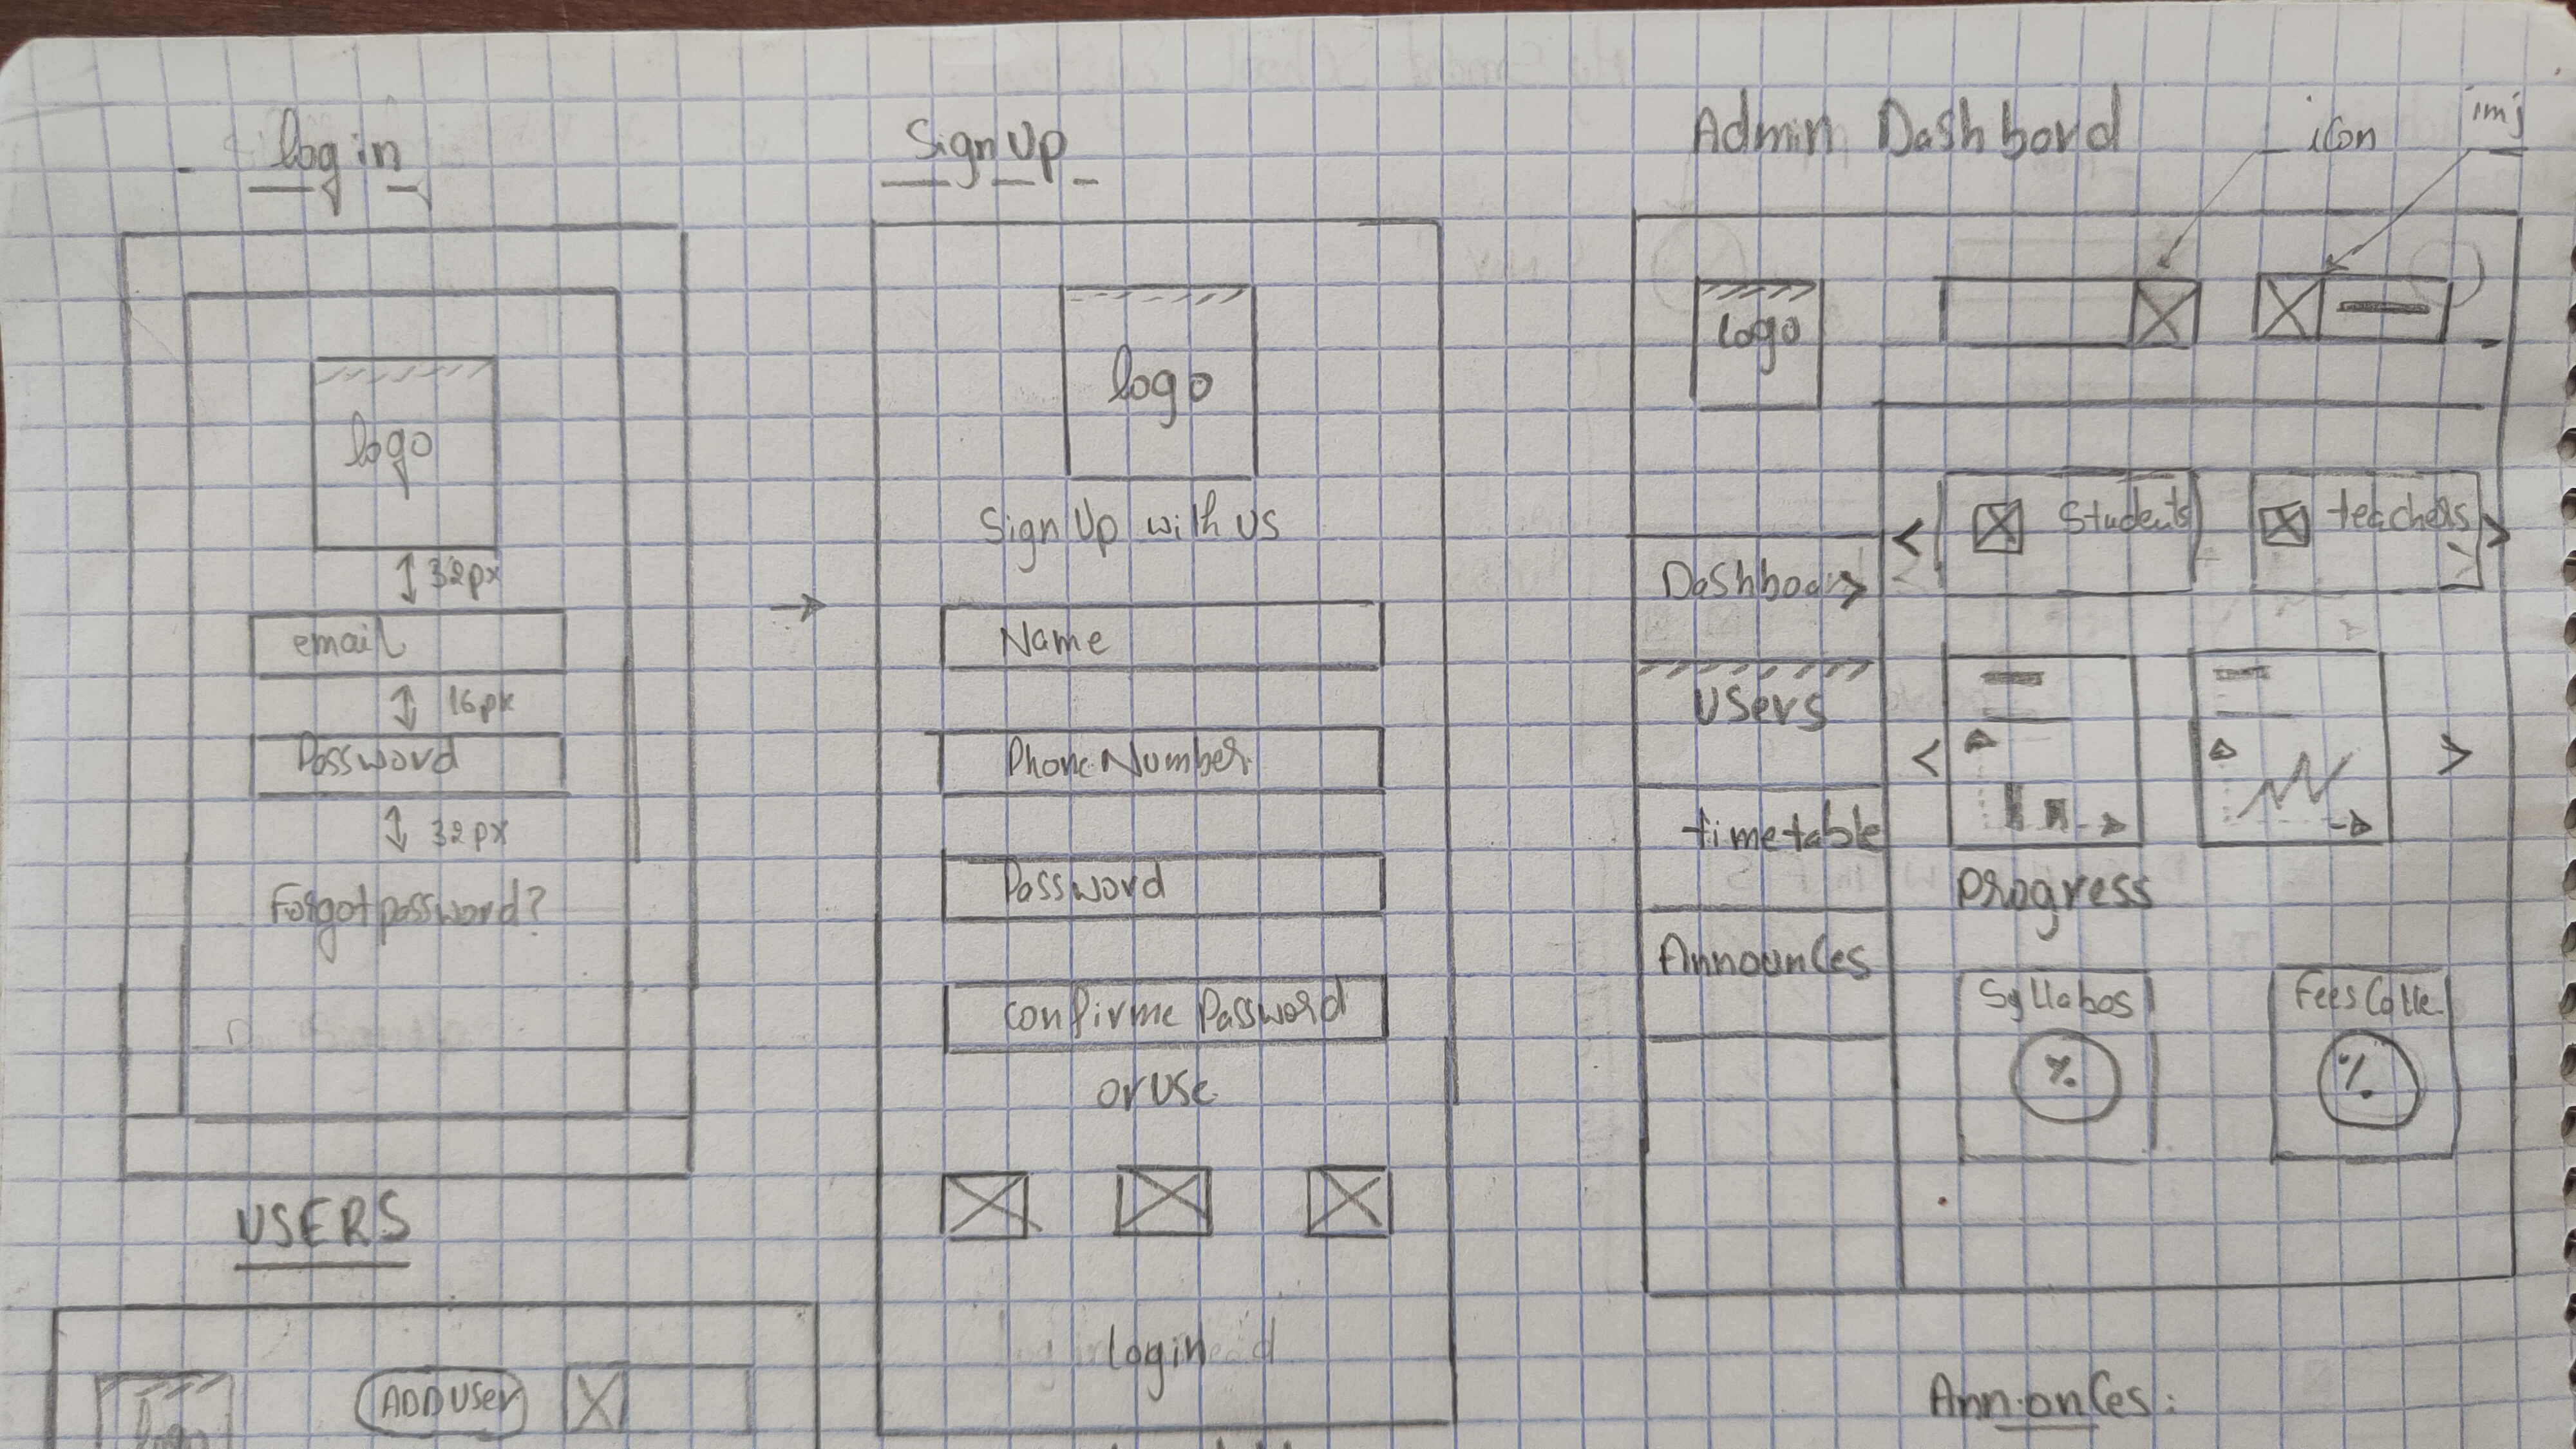 login
logo
32px
email
16px
Password
32px
Forgot password?
USERS
logo
ADD User
Sign Up
logo
Sign Up with us
Name
Phone Number
Password
confirme Password
or use
login
Admin Dashbord
icon
imj
logo
Students
teachers
Dashboa
Users
timetable
Progress
Announces
Syllabos
%
Fees Colle.
%
Annonces: